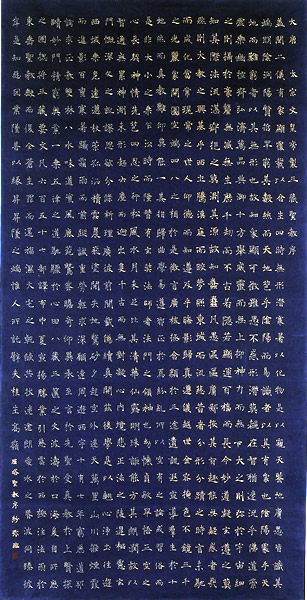 大唐太宗文皇帝製三藏聖教序
蓋聞二儀有像顯覆載以含生四時無形潛寒暑以化物是以窺天鑒地庸愚皆識其
端明陰洞陽賢哲罕窮其數然而天地苞乎陰陽而易識者以其有像也陰陽處乎天
地而難窮者以其無形也故知像顯可徵雖愚不惑形潛莫睹在智猶迷況乎佛道崇
虛乘幽控寂弘濟萬品典御十方舉威靈而無上抑神力而無下大之則彌於宇宙細
之則攝於毫釐無滅無生歷千劫而不古若隱若顯運百福而長今妙道凝玄遵之莫
知其際法流湛寂挹之莫測其源故知蠢蠢凡愚區區庸鄙投其旨趣能無疑惑者哉
然則大教之興基乎西土騰漢庭而皎夢照東域而流慈昔者分形分跡之時言未馳
而成化當常現常之世人仰德而知遵及乎晦影歸真遷儀越世金容掩色不鏡三千
之光麗象開圖空端四八之相於是微言廣被拯含類於三途遺訓遐宣導群生於十
地然而真教難仰莫能一其旨歸曲學易遵邪正於焉紛糾所以空有之論或習俗而
是非大小之乘乍沿時而隆替有玄奘法師者法門之領袖也幼懷貞敏早悟三空之
心長契神情先苞四忍之行松風水月未足比其清華仙露明珠詎能方其朗潤故以
智通無累神測未形超六塵而迥出隻千古而無對凝心內境悲正法之陵遲棲慮玄
門慨深文之訛謬思欲分條析理廣彼前聞截偽續真開茲後學是以翹心淨土往遊
西域乘危遠邁杖策孤征積雪晨飛途間失地驚砂夕起空外迷天萬里山川撥煙霞
而進影百重寒暑躡霜雨而前蹤誠重勞輕求深願達周遊西宇十有七年窮歷道邦
詢求正教雙林八水味道餐風鹿苑鷲峰瞻奇仰異承至言於先聖受真教於上賢探
賾妙門精窮奧業一乘五律之道馳驟於心田八藏三篋之文波濤於口海爰自所歷
之國總將三藏要文凡六百五十七部譯布中夏宣揚勝業引慈雲於西極注法雨於
東垂聖教缺而復全蒼生罪而還福濕火宅之乾焰共拔迷途朗愛水之昏波同臻彼
岸是知惡因業墜善以緣昇昇墜之端惟人所託譬夫桂生高嶺 雁塔聖教序